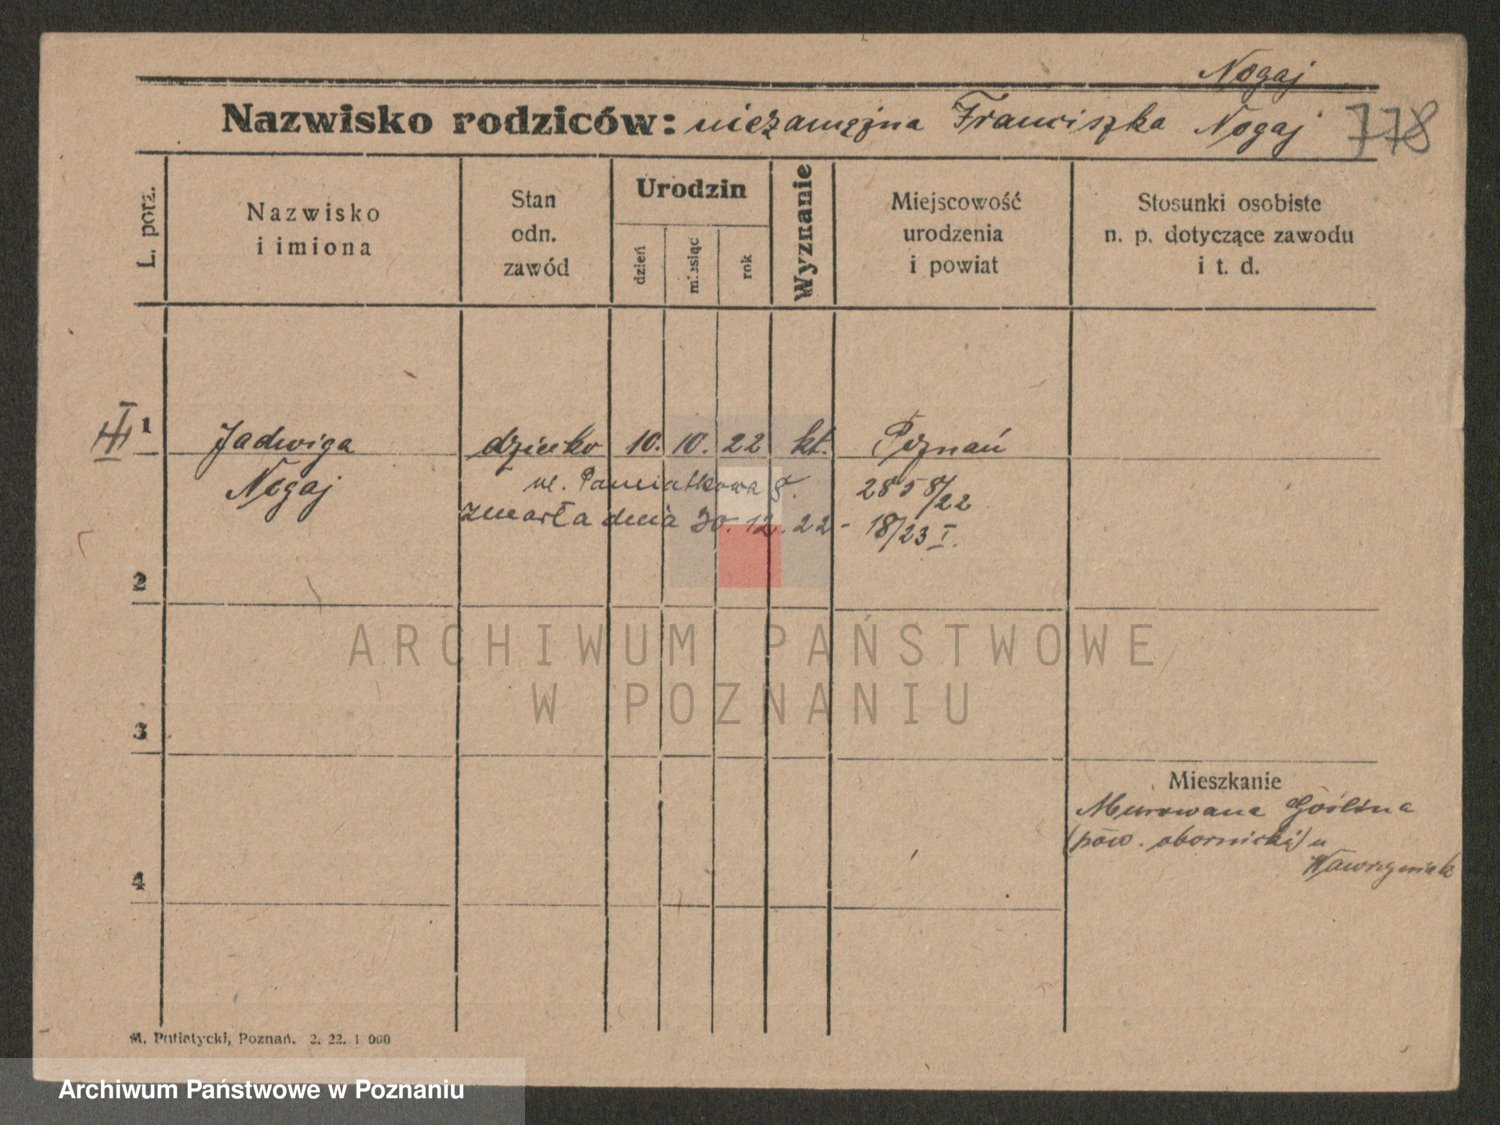 Nogaj
Nazwisko rodziców: niezamężna Franciszka Nogaj 778
L. porz.
Nazwisko
i imiona
Stan
odn.
zawód
Urodzin
dzień
miesiąc
rok
Wyznanie
Miejscowość
urodzenia
i powiat
Stosunki osobiste
n. p. dotyczące zawodu
i t. d.
1 Jadwiga dziecko 10. 10. 22 kt. Poznań
Nogaj ul. Pamiatkowa 8. 2858/22
zmarła dnia 30. 12. 22 - 18/23 I.
2
ARCHIWUM PAŃSTWOWE
W POZNANIU
3
Mieszkanie
Murowana Goślina
(pow. obornicki) u
Wawrzyniak
4
M. Putiatycki, Poznań. 2. 22. 1 000
Archiwum Państwowe w Poznaniu